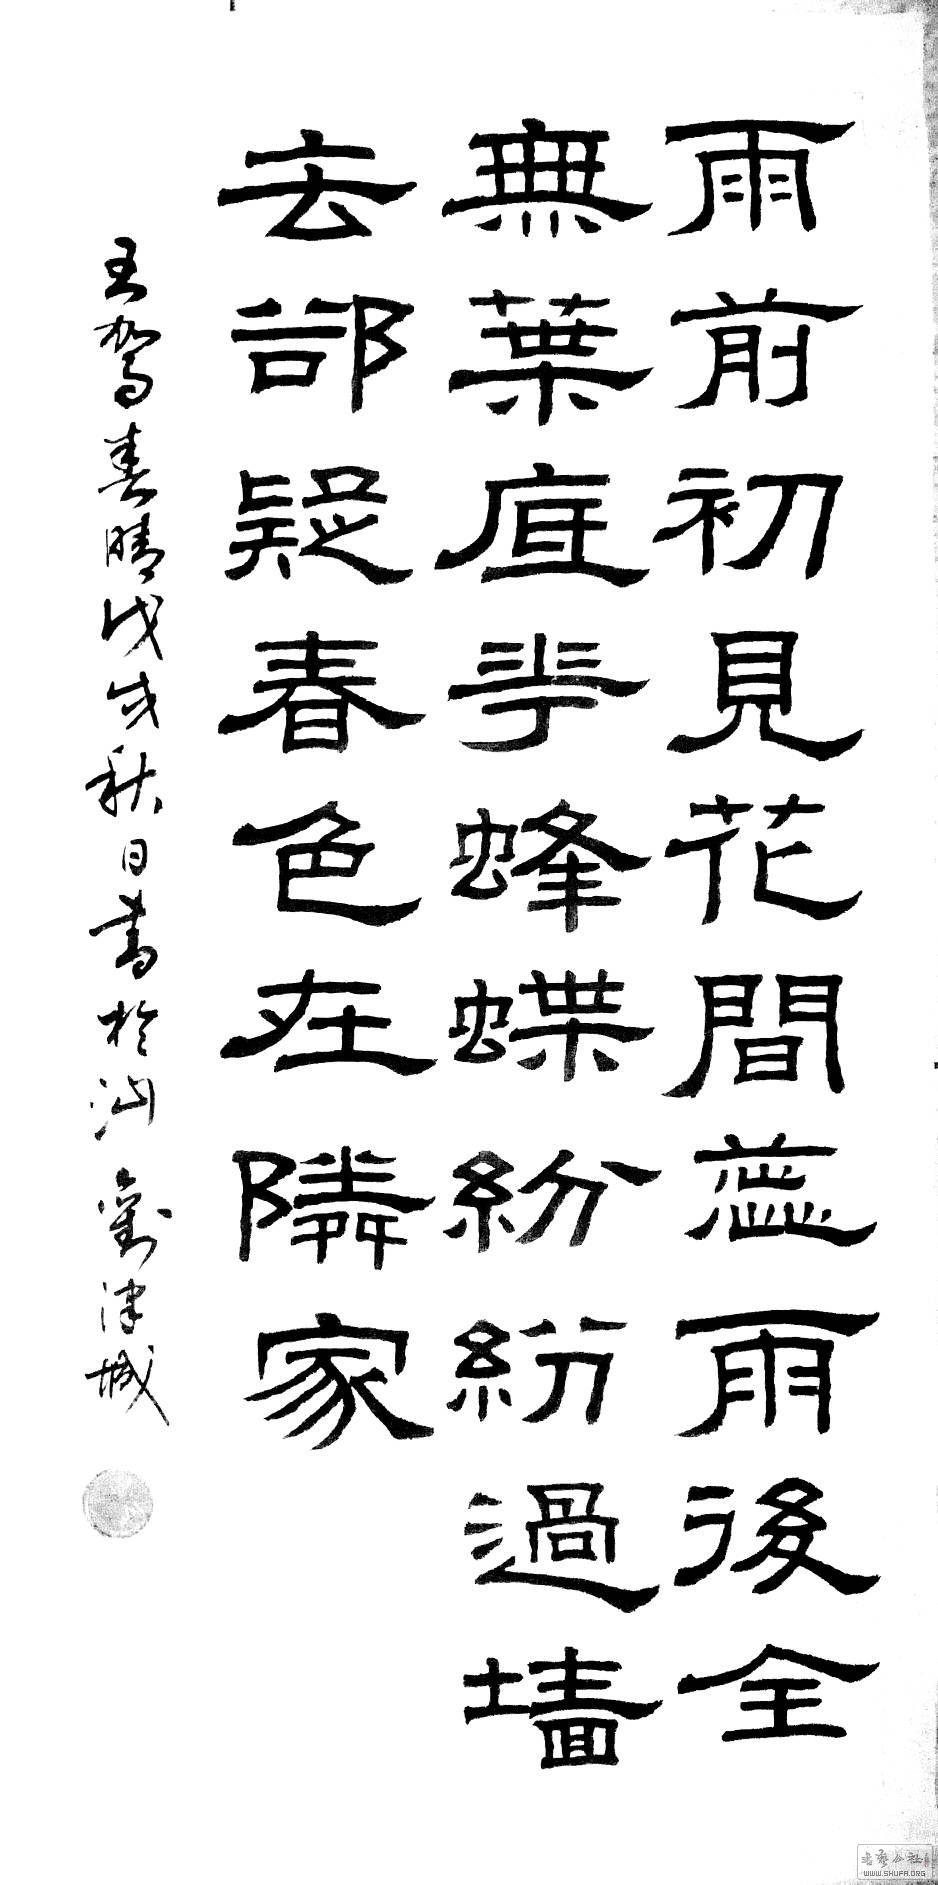 雨前初見花間蕊雨後全
無葉底華蜂蝶紛紛過墻
去郤疑春色在隣家
王駕春晴戊戌秋日書於汕 劉津城
書藝公社
WWW.SHUFA.ORG